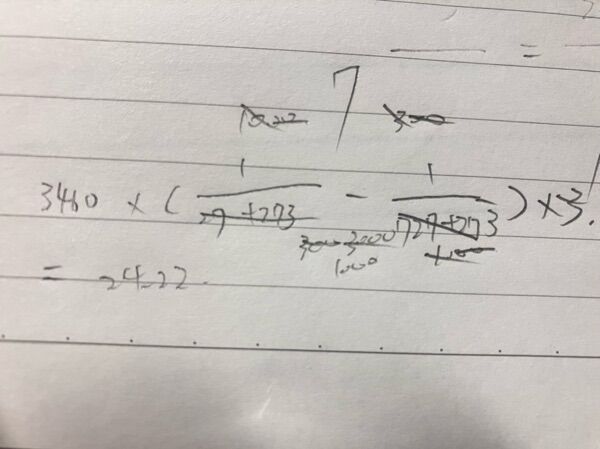 =
7
1 1
3460 × ( 27+273 - 727+273 ) × 3.
1000
= 24.22